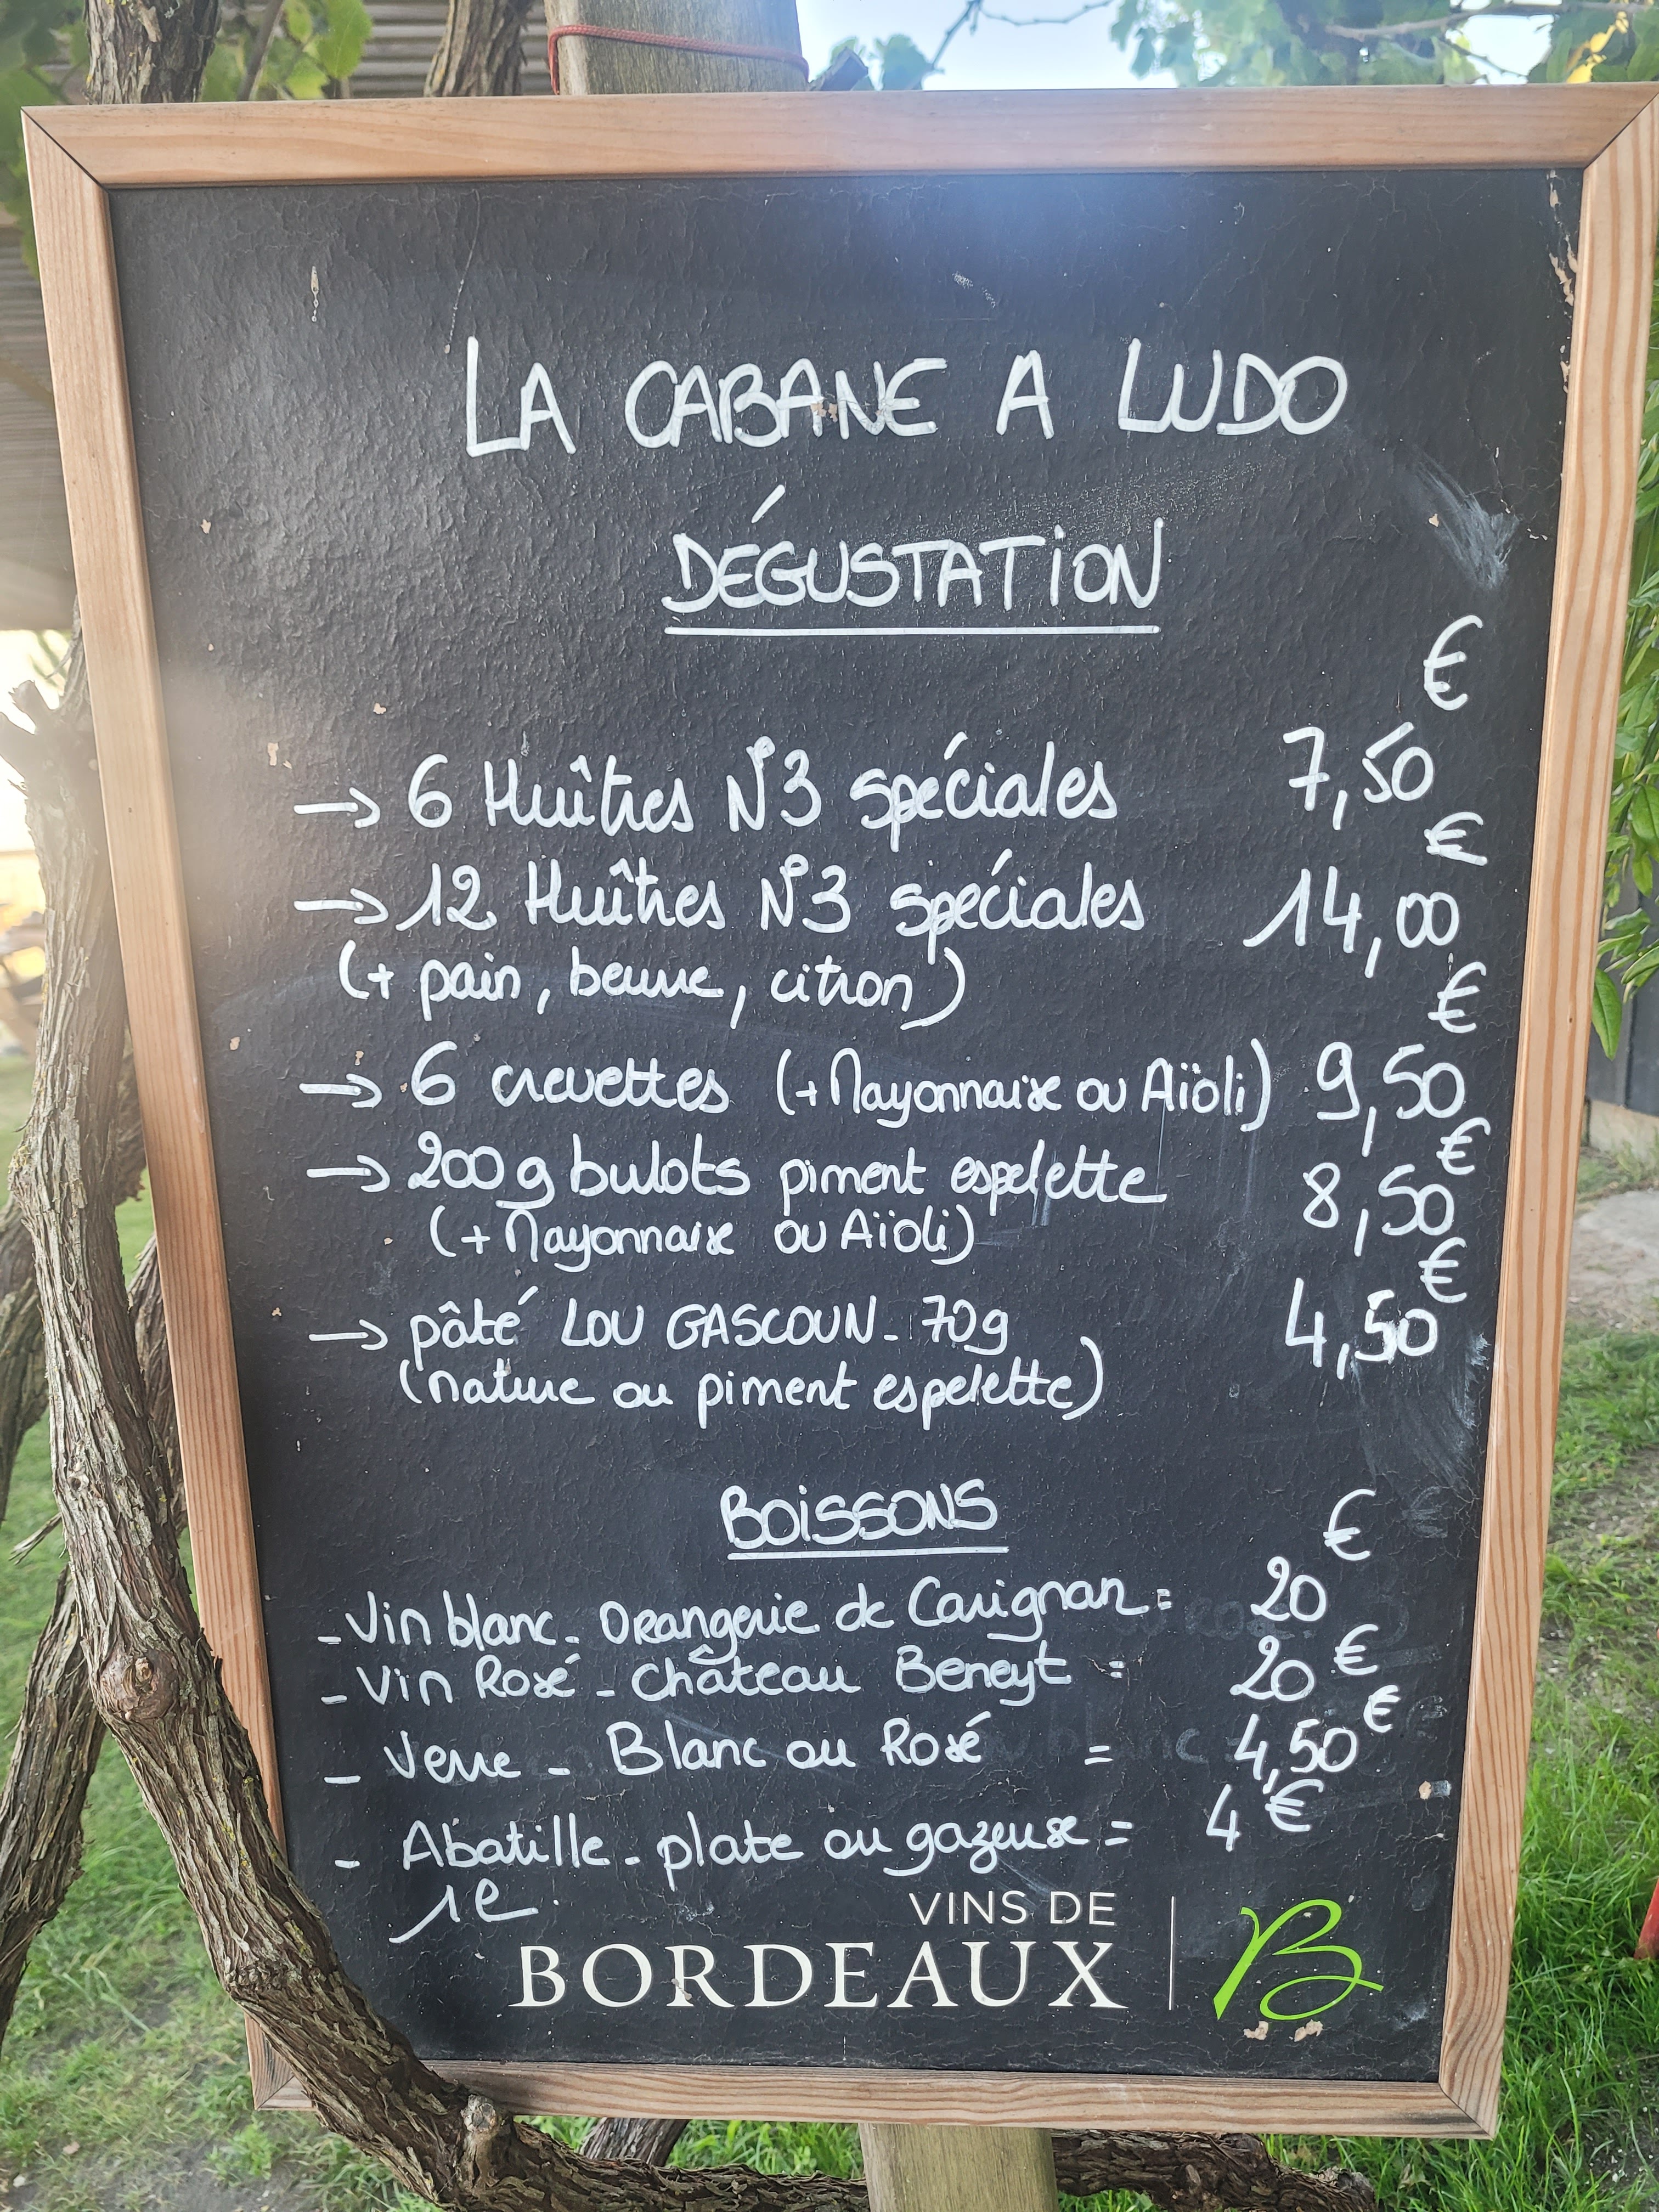 LA CABANE A LUDO
DÉGUSTATION
→ 6 Huîtres N°3 spéciales 7,50 €
→ 12 Huîtres N°3 spéciales 14,00 €
(+ pain, beurre, citron)
→ 6 crevettes (+ Mayonnaise ou Aïoli) 9,50 €
→ 200g bulots piment espelette 8,50 €
(+ Mayonnaise ou Aïoli)
→ pâté LOU GASCOUN - 70g 4,50 €
(nature ou piment espelette)
BOISSONS
- Vin blanc - Orangerie de Carignan = 20 €
- Vin Rosé - Château Beneyt = 20 €
- Verre - Blanc ou Rosé = 4,50 €
- Abatille - plate ou gazeuse = 4 €
1e.
VINS DE
BORDEAUX B